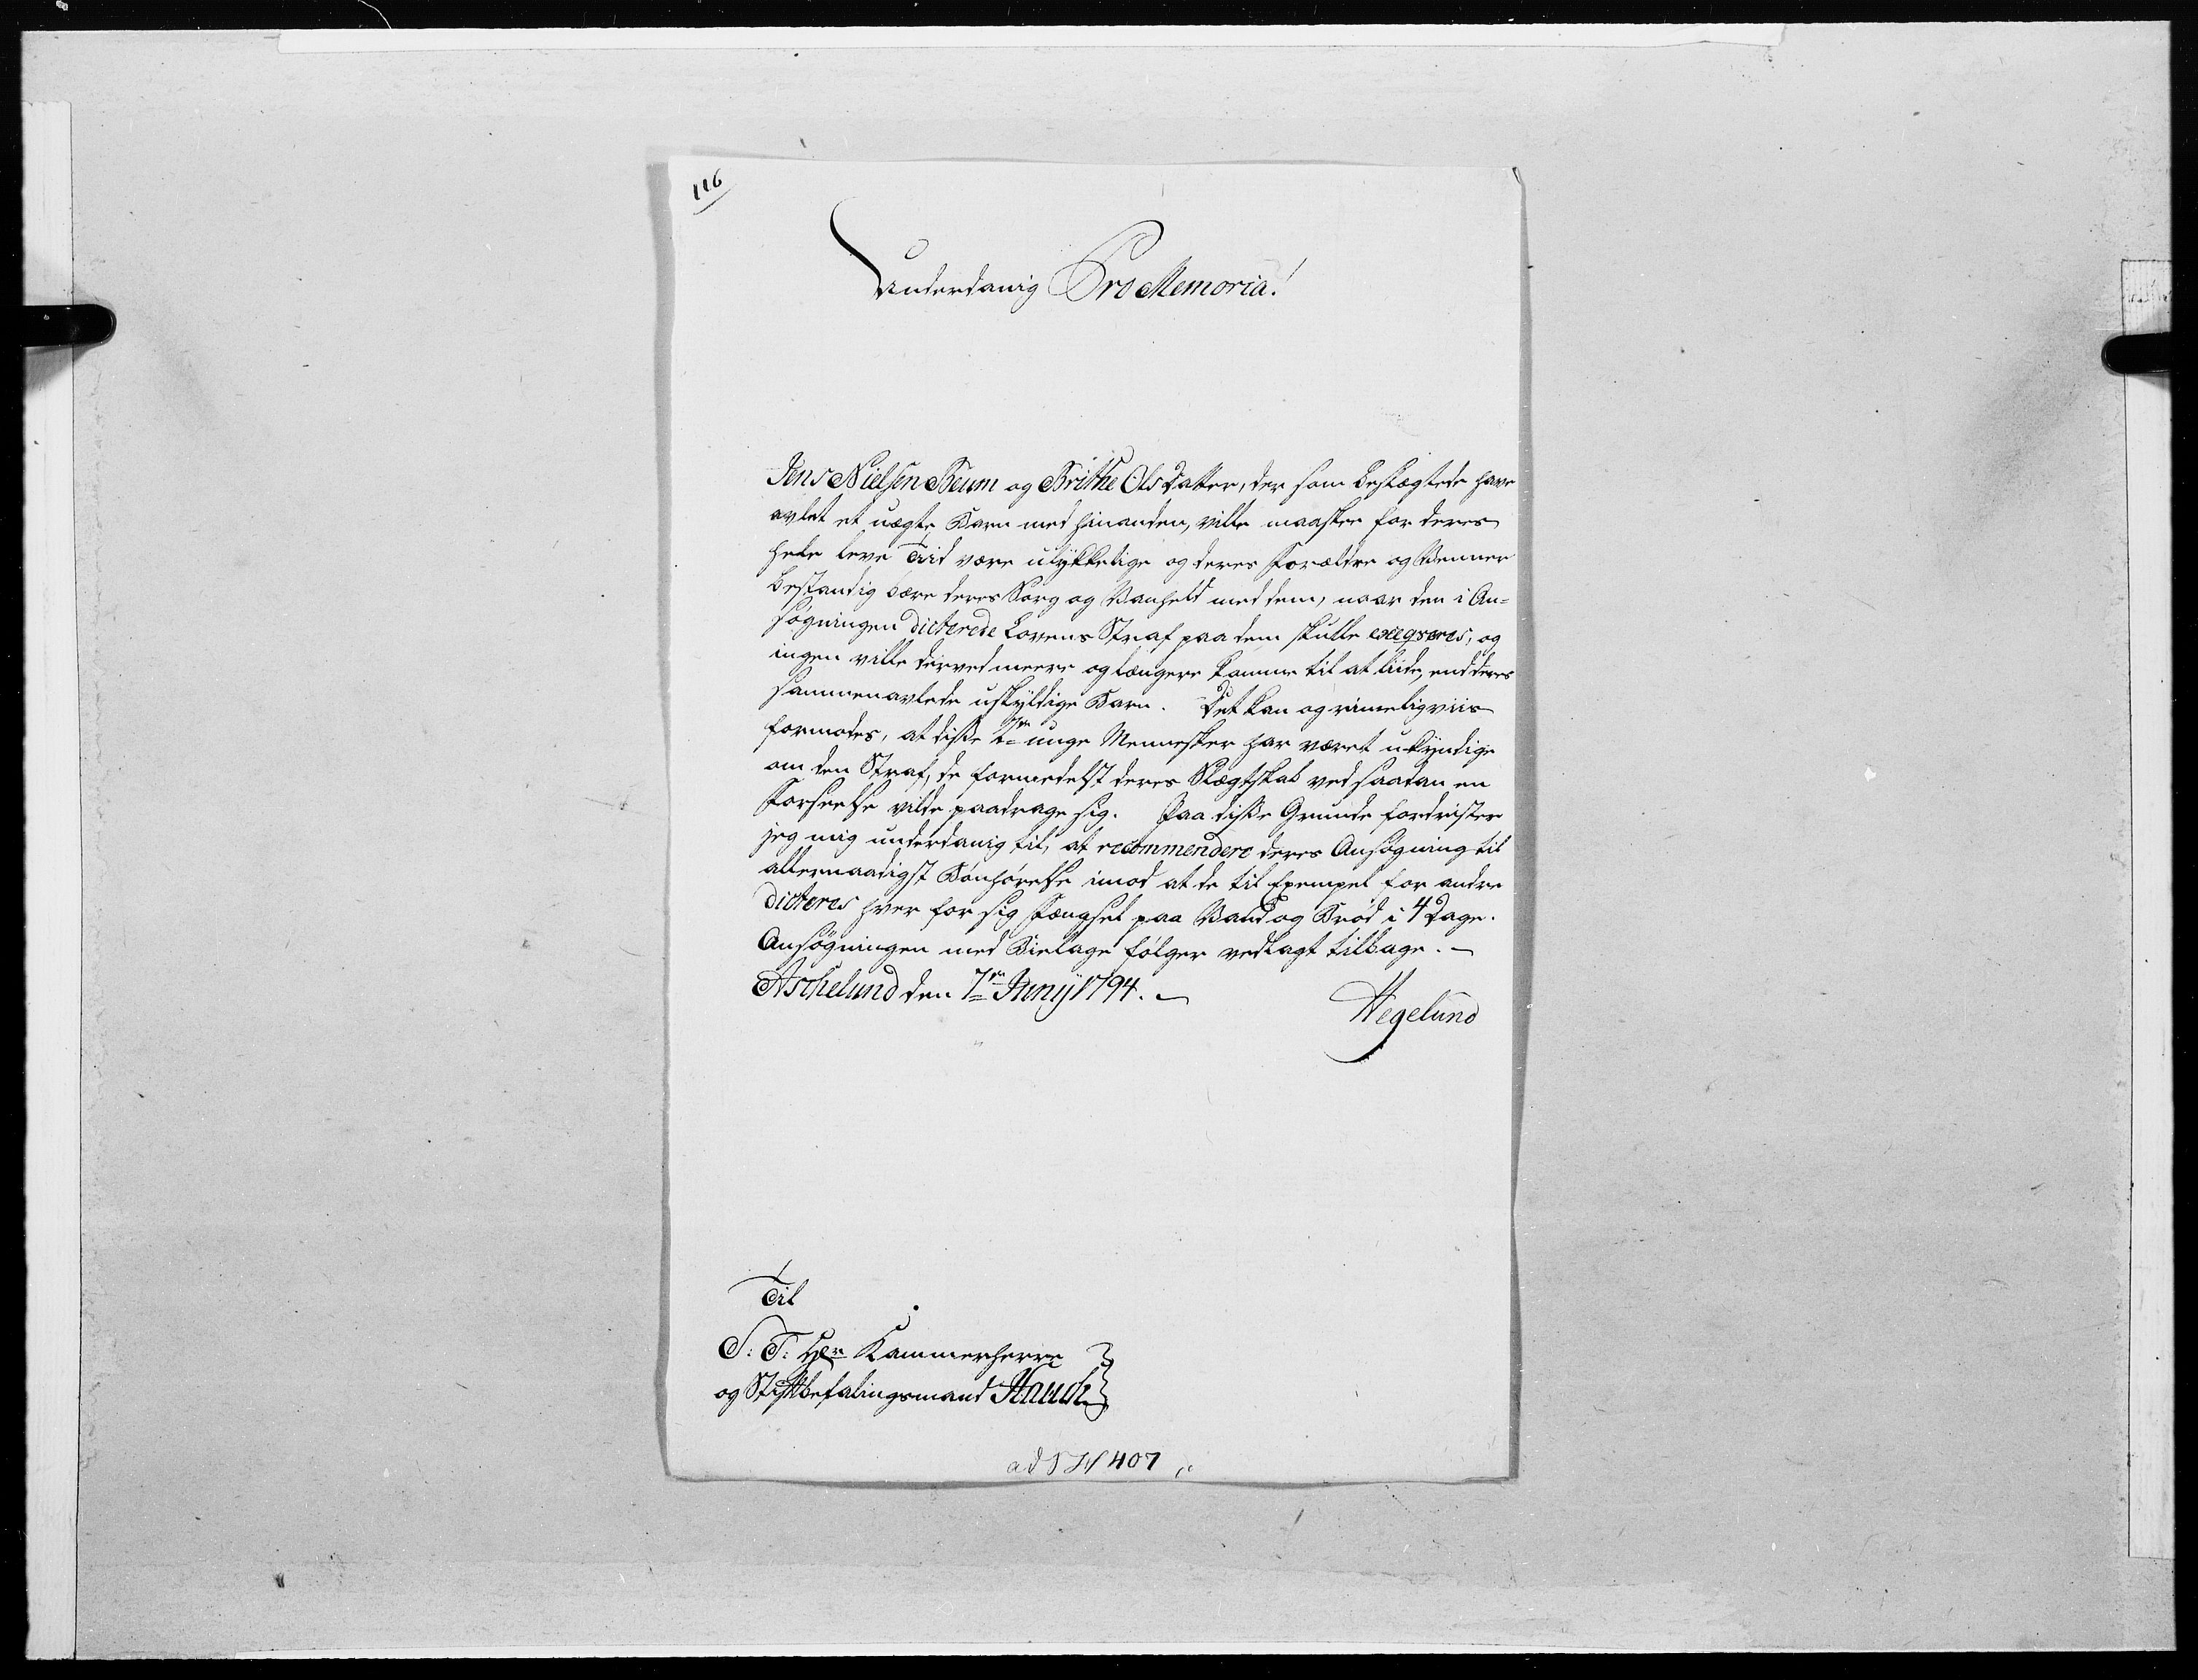 116
Underdanig Pro Memoria!
Jens Nielsen Beum og Brithe Ols Datter, der som beslægtede have
avlet et uægte Barn med hinanden, ville maaskee for deres
hele leve Tiid være ulykkelige og deres Forældre og Venner
bestandig bære deres Sorg og Vanheld med dem, naar den i An-
søgningen dicterede Lovens Straf paa dem skulle exeqveres, og
ingen ville derved meere og længere komme til at liide, end deres
sammenavlede uskyldige Barn. Det kan og rimeligviis
formodes, at disse unge Mennesker har været ukyndige
om den Straf, de formedelst deres Slægtskab ved saadan en
Forseelse vilde paadrage sig. Paa disse Grunde fordrister
jeg mig underdanig til, at recommendere deres Ansøgning til
allernaadigst Bønhørelse imod at de til Exempel for andre
dicteres hver for sig Fængsel paa Vand og Brød i 4 Dage.
Ansøgningen med Bielage følger vedlagt tilbage. —
Aschelund den 7de Junij 1794. —
Hegelund
Til
S: T: Hr Kammerherre
og Stiftbefalingsmand Hauch
ad 407